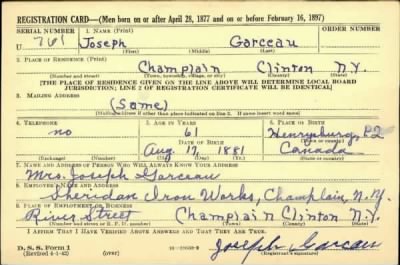 REGISTRATION CARD—(Men born on or after April 28, 1877 and on or before February 16, 1897)
SERIAL NUMBER 1. NAME (Print) ORDER NUMBER
U 761 Joseph Garceau
(First) (Middle) (Last)
2. PLACE OF RESIDENCE (Print)
Champlain Clinton N.Y.
(Number and street) (Town, township, village, or city) (County) (State)
[THE PLACE OF RESIDENCE GIVEN ON THE LINE ABOVE WILL DETERMINE LOCAL BOARD
JURISDICTION; LINE 2 OF REGISTRATION CERTIFICATE WILL BE IDENTICAL]
3. MAILING ADDRESS
(Same)
[Mailing address if other than place indicated on line 2. If same insert word same]
4. TELEPHONE 5. AGE IN YEARS 6. PLACE OF BIRTH
no 61 Henrysburg, P2
DATE OF BIRTH
Aug. 17, 1881 Canada
(Exchange) (Number) (Mo.) (Day) (Yr.) (State or country)
7. NAME AND ADDRESS OF PERSON WHO WILL ALWAYS KNOW YOUR ADDRESS
Mrs. Joseph Garceau
8. EMPLOYER'S NAME AND ADDRESS
Sheridan Iron Works, Champlain, N.Y.
9. PLACE OF EMPLOYMENT OR BUSINESS
River Street Champlain Clinton N.Y.
(Number and street or R. F. D. number) (Town) (County) (State)
I AFFIRM THAT I HAVE VERIFIED ABOVE ANSWERS AND THAT THEY ARE TRUE.
D. S. S. Form 1
(Revised 4-1-42) (over)
Joseph Garceau
(Registrant's signature)